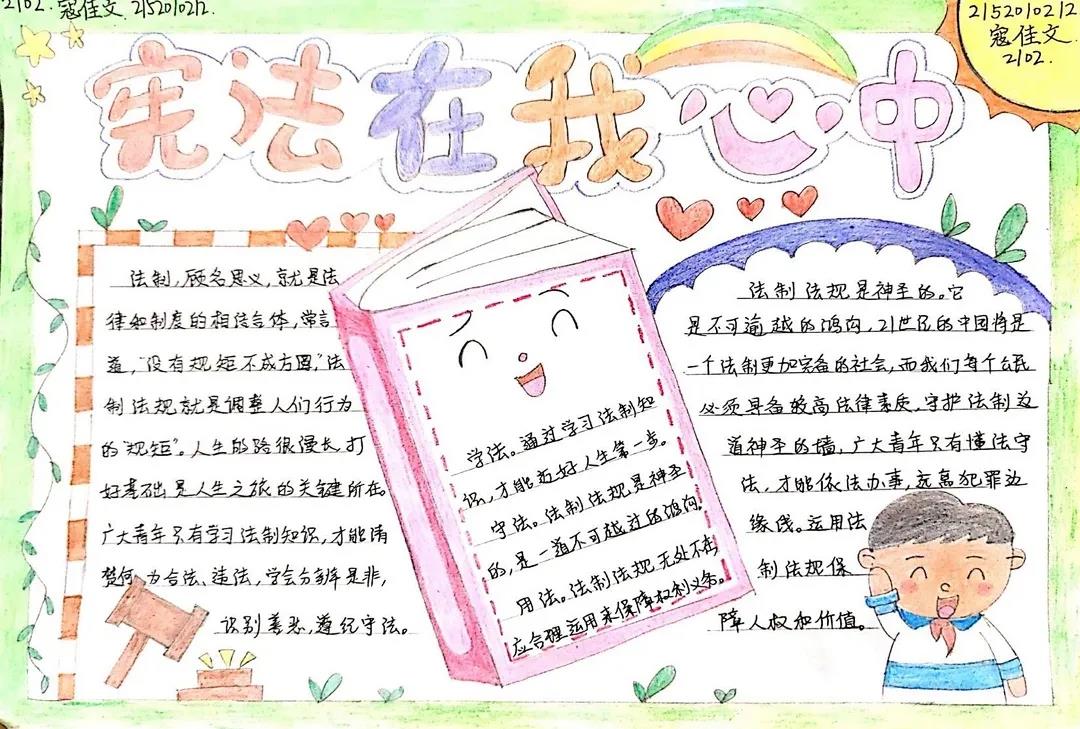 2102. 寇佳文 2152010212.
2152010212
寇佳文
2102.
宪法在我心中
法制,顾名思义,就是法
律和制度的相结合体,常言
道,"没有规矩不成方圆,"法
制法规就是调整人们行为
的"规矩"。人生的路很漫长,打
好基础是人生之旅的关键所在。
广大青年只有学习法制知识,才能清
楚何为合法、违法,学会分辨是非,
识别善恶,遵纪守法。
学法。通过学习法制知
识,才能迈好人生第一步。
守法。法制法规是神圣
的,是一道不可越过的鸿沟。
用法。法制法规无处不在,
应合理运用来保障权利义务。
法制法规是神圣的。它
是不可逾越的鸿沟,21世纪的中国将是
一个法制更加完备的社会,而我们每个公民
必须具备较高法律素质,守护法制这
道神圣的墙,广大青年只有懂法守
法,才能依法办事,远离犯罪边
缘线。运用法
制法规保
障人权和价值。